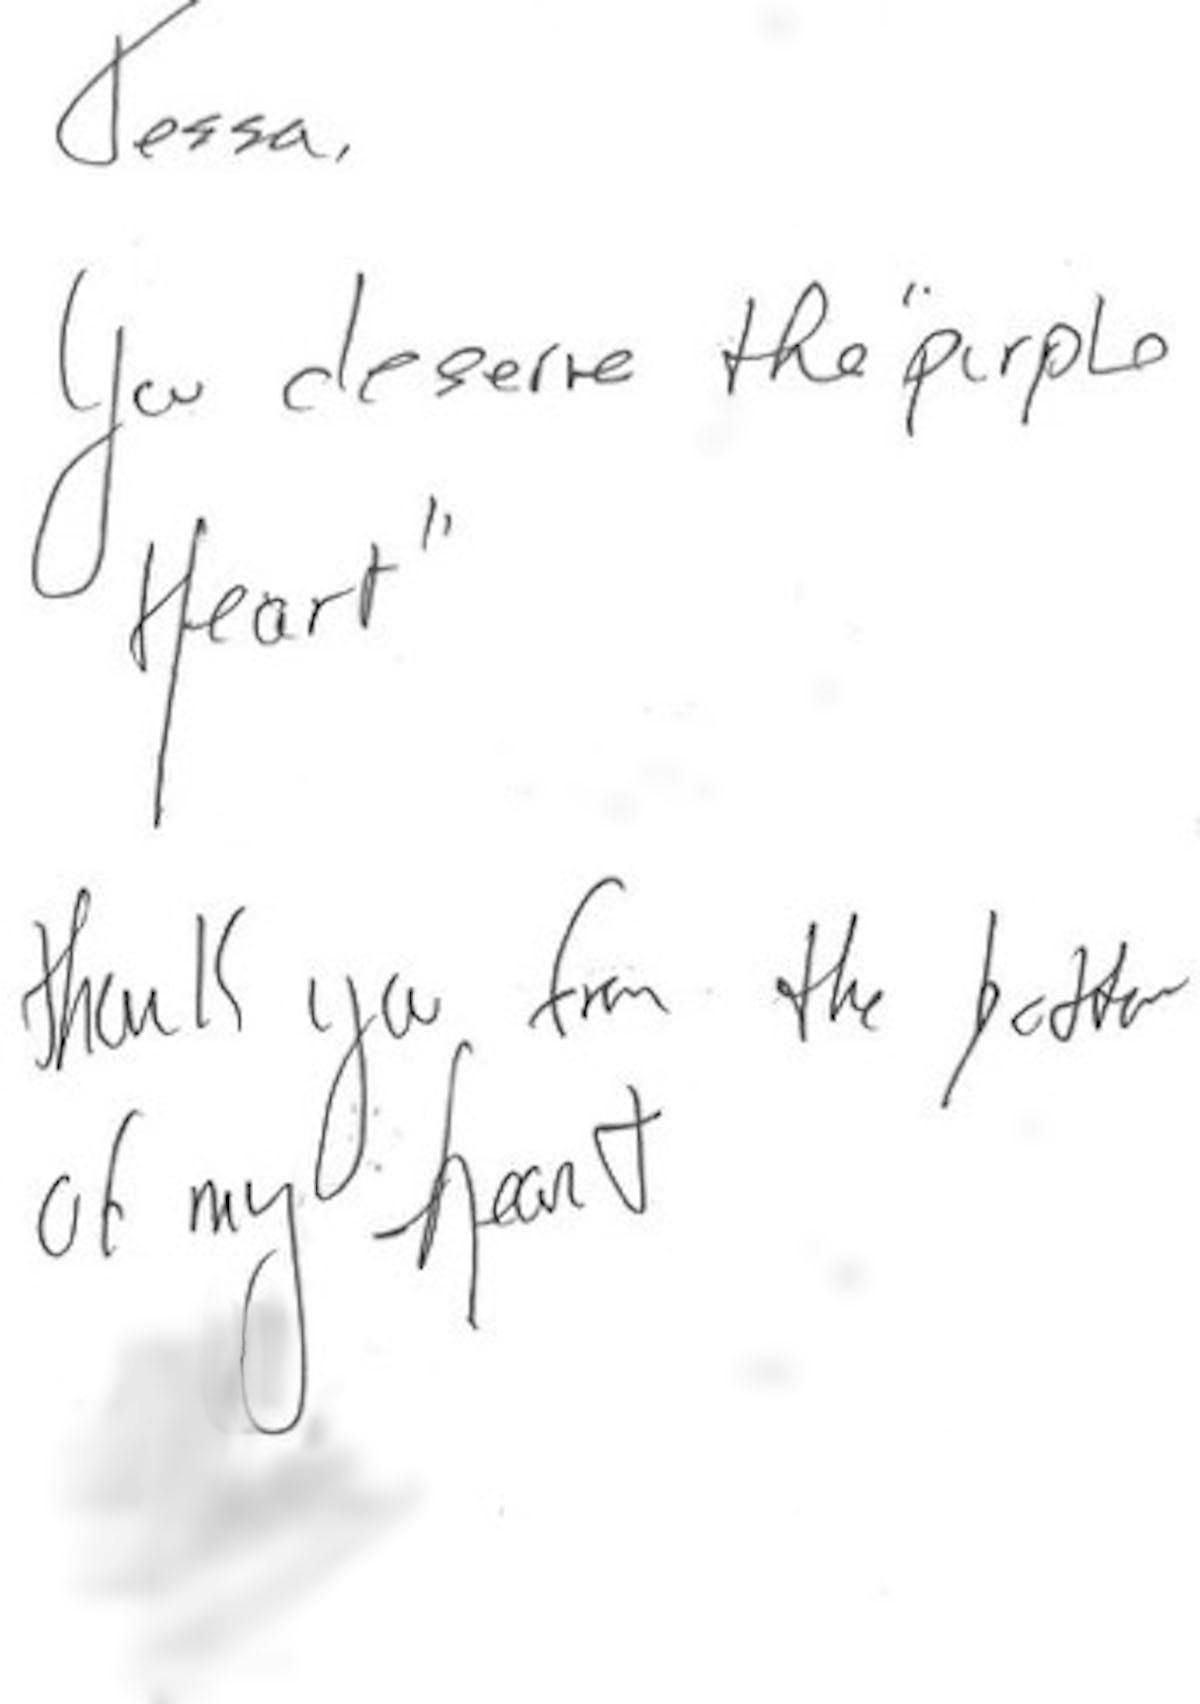 Tessa,
You deserve the "purple
Heart"
thank you from the bottom
of my heart